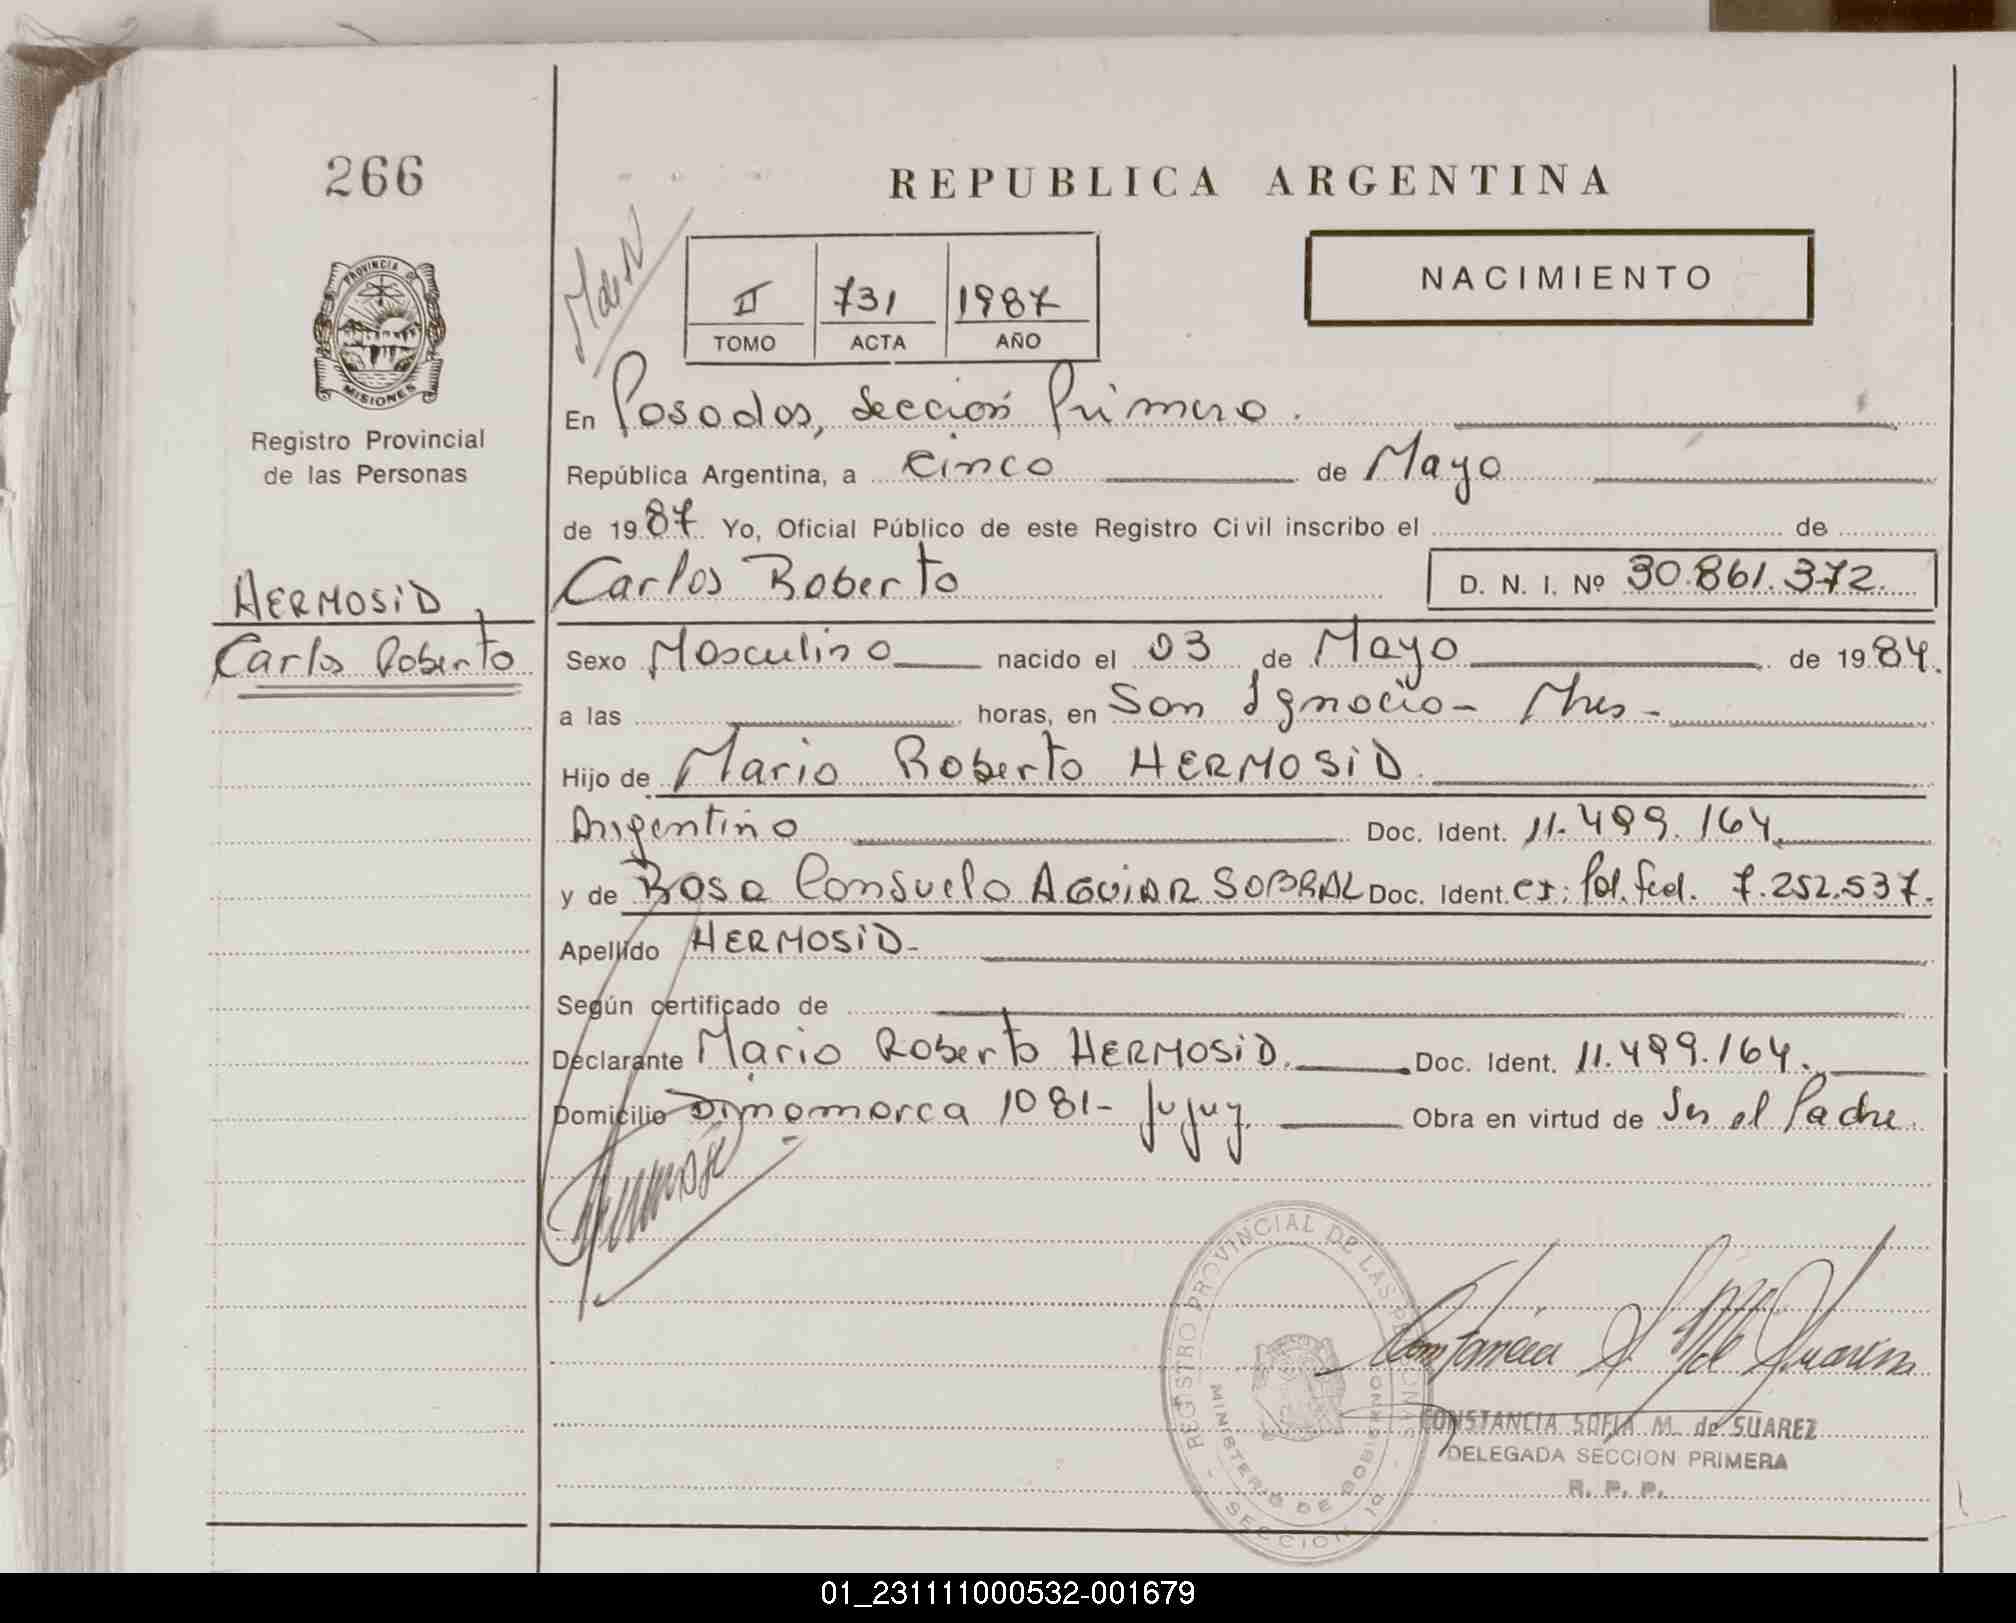 266
REPUBLICA ARGENTINA
M de N
II 731 1987
TOMO ACTA AÑO
NACIMIENTO
PROVINCIA DE
MISIONES
Registro Provincial
de las Personas
HERMOSID
Carlos Roberto
En Posadas, Sección Primera.
República Argentina, a cinco de Mayo
de 1987 Yo, Oficial Público de este Registro Civil inscribo el de
Carlos Roberto D. N. I. Nº 30.861.372.
Sexo Masculino nacido el 03 de Mayo de 1984.
a las horas, en San Ignacio - Mnes -
Hijo de Mario Roberto HERMOSID.
Argentino Doc. Ident. 11.499.164.
y de Rosa Consuelo AGUIAR SOBRAL Doc. Ident. CI: Pol. Fed. 7.252.537.
Apellido HERMOSID-
Según certificado de
Declarante Mario Roberto HERMOSID. Doc. Ident. 11.499.164.
Domicilio Dinamarca 1081- Jujuy. Obra en virtud de Ser el Padre.
REGISTRO PROVINCIAL DE LAS PERSONAS
MINISTERIO DE GOBIERNO
SECCION 1a
CONSTANCIA SOFIA M. de SUAREZ
DELEGADA SECCION PRIMERA
R. P. P.
01_231111000532-001679